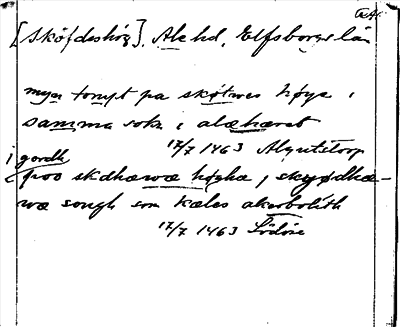 [Sköfdeshög]. Ale hd, Elfsborgs län
myn tompt pa skøtwes høye i
samma sokn i alæhæret
17/7 1463
i gordh
poo skdhæwæ høgha, skyødhæ-
wæ songh som kales akerbolith
17/7 1463 Lödöse